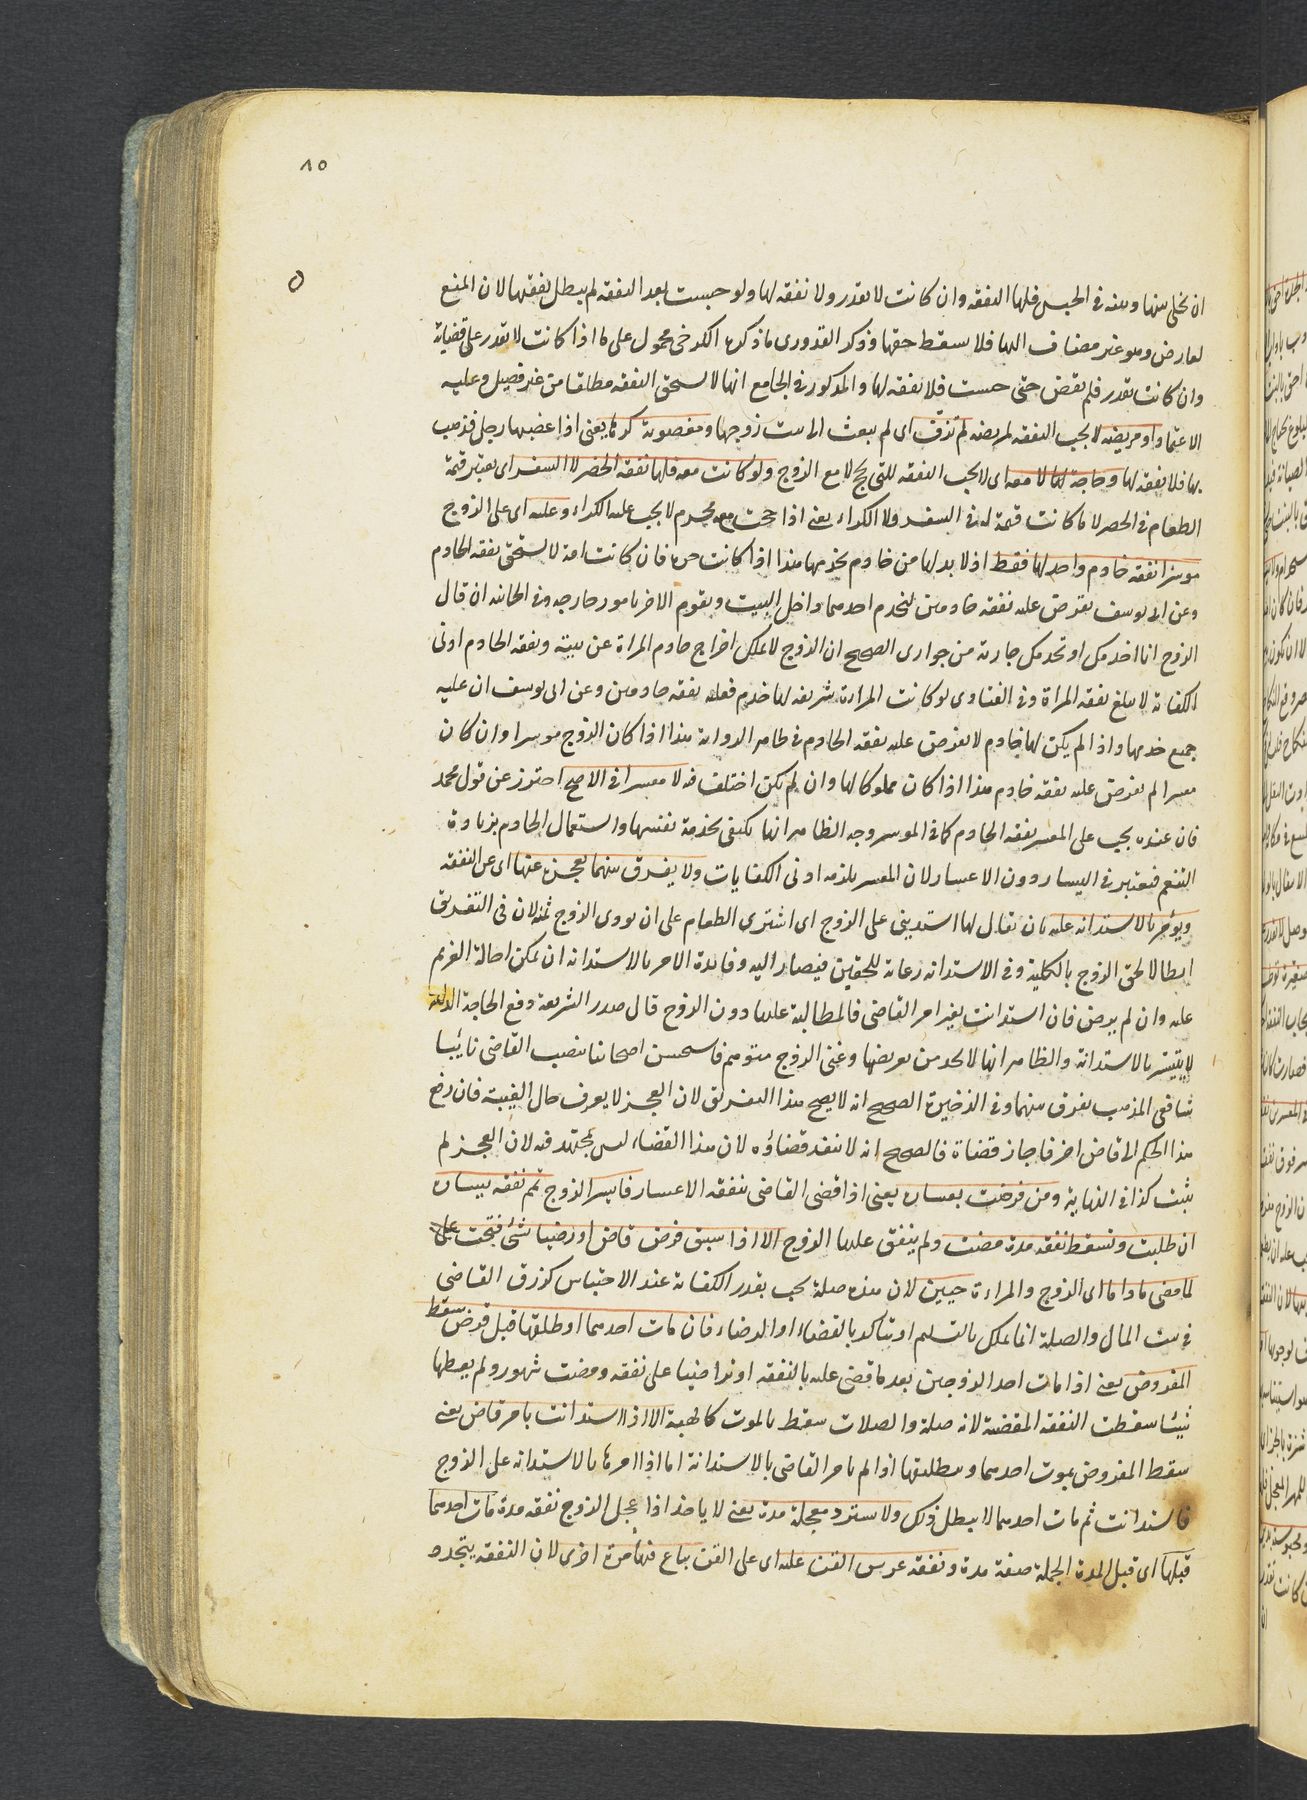 ٨٥
ان يخلى بينها وبينه في الحبس فلها النفقة وان كانت لا تقدر ولا نفقة لها ولو حبست بعد النفقة لم يبطل نفقتها لان المنع
لعارض وهو غير مضاف اليها فلا يسقط حقها وذكر القدورى ما ذكره الكرخى محمول على ما اذا كانت لا تقدر على قضائه
وان كانت تقدر فلم تقض حتى حبست فلا نفقة لها والمذكور في الجامع انها لا تستحق النفقة مطلقا من غير تفصيل وعليه
الاعتماد او مريضة لا يجب النفقة لمريضة لم تزف اى لم يبعث الى بيت زوجها ومغصوبة كرها يعنى اذا غصبها رجل فذهب
بها فلا نفقة لها وحاجة لها لا معه اى لا يجب النفقة للتى تحج لا مع الزوج ولو كانت معه فلها نفقة الحضر لا السفر اى يعتبر قيمة
الطعام في الحضر لا ما كانت قيمة له في السفر ولا الكراء يعنى اذا حجت مع محرم لا يجب عليه الكراء وعليه اى على الزوج
موسرا نفقة خادم واحد لها فقط اذ لا بد لها من خادم يخدمها هذا اذا كانت حرة فان كانت امة لا تستحق نفقة الخادم
وعن ابى يوسف يفرض عليه نفقة خادمين ليخدم احدهما داخل البيت ويقوم الاخر بامور خارجه وفي الخانية ان قال
الزوج انا اخدمك او تخدمك جارية من جوارى الصحيح ان الزوج لا يملك اخراج خادم المراة عن بيته ونفقة الخادم ادنى
الكفاية لا يبلغ نفقة المراة وفي الفتاوى لو كانت المراة شريفة لها خدم فعليه نفقة خادمين وعن ابى يوسف ان عليه
جميع خدمها واذا لم يكن لها خادم لا يفرض عليه نفقة الخادم في ظاهر الرواية هذا اذا كان الزوج موسرا وان كان
معسرا لم يفرض عليه نفقة خادم هذا اذا كان مملوكا لها وان لم يكن اختلف فيه لا معسرا في الاصح احترز عن قول محمد
فان عنده يجب على المعسر نفقة الخادم كما في الموسر وجه الظاهر انها تكتفى بخدمة نفسها واستعمال الخادم بزيادة
التنعم فيعتبر في اليسار دون الاعسار لان المعسر يلزمه ادنى الكفايات ولا يفرق بينهما بعجزه عنها اى عن النفقة
ويؤمر بالاستدانة عليه بان يقال لها استدينى على الزوج اى اشترى الطعام على ان يودى الزوج ثمنه لان في التفريق
ابطالا لحق الزوج بالكلية وفي الاستدانة رعاية للحقين فيصار اليه وفائدة الامر بالاستدانة ان يمكن احالة الغريم
عليه وان لم يرض فان استدانت بغير امر القاضى فالمطالبة عليها دون الزوج قال صدر الشريعة دفع الحاجة الدائمة
لا يتيسر بالاستدانة والظاهر انها لا تجد من يقرضها وغنى الزوج متوهم فاستحسن اصحابنا نصب القاضى نائبا
شافعى المذهب يفرق بينهما وفي الذخيرة الصحيح انه لا يصح هذا التفريق لان العجز لا يعرف حال الغيبة فان رفع
هذا الحكم الى قاض اخر فاجاز قضاة فالصحيح انه لا ينفذ قضاؤه لان هذا القضاء ليس بمجتهد فيه لان العجز لم
يثبت كذا في النهاية ومن فرضت بعساره يعنى اذا قضى القاضى بنفقة الاعسار فايسر الزوج تمم نفقة يساره
ان طلبت وتسقط نفقة مدة مضت ولم ينفق عليها الزوج الا اذا سبق فرض قاض او رضيا بشئ فيجب عليه
لما مضى ما داما اى الزوج والمراءة حيين لان هذه صلة يجب بقدر الكفاية عند الاحتباس كرزق القاضى
في بيت المال والصلة انما يملك بالتسليم او يتاكد بالقضاء او الرضاء فان مات احدهما او طلقها قبل قبض سقط
المفروض يعنى اذا مات احد الزوجين بعد ما قضى عليه بالنفقة او تراضيا على نفقة ومضت شهور ولم يعطها
شيئا سقطت النفقة المقضية لانه صلة والصلات سقط بالموت كالهبة الا اذا استدانت بامر قاض يعنى
يسقط المفروض بموت احدهما وبطلاقها اذا لم يامر القاضى بالاستدانة اما اذا امرها بالاستدانة على الزوج
فاستدانت ثم مات احدهما لا يبطل ذلك ولا تسترد معجلة مدة يعنى لا ياخذ اذا عجل الزوج نفقة مدة مات احدهما
قبلها اى قبل المدة الجملة صفة مدة ونفقة عرس القن عليه اى على القن يباع فيها مرة اخرى لان النفقة يتجدد